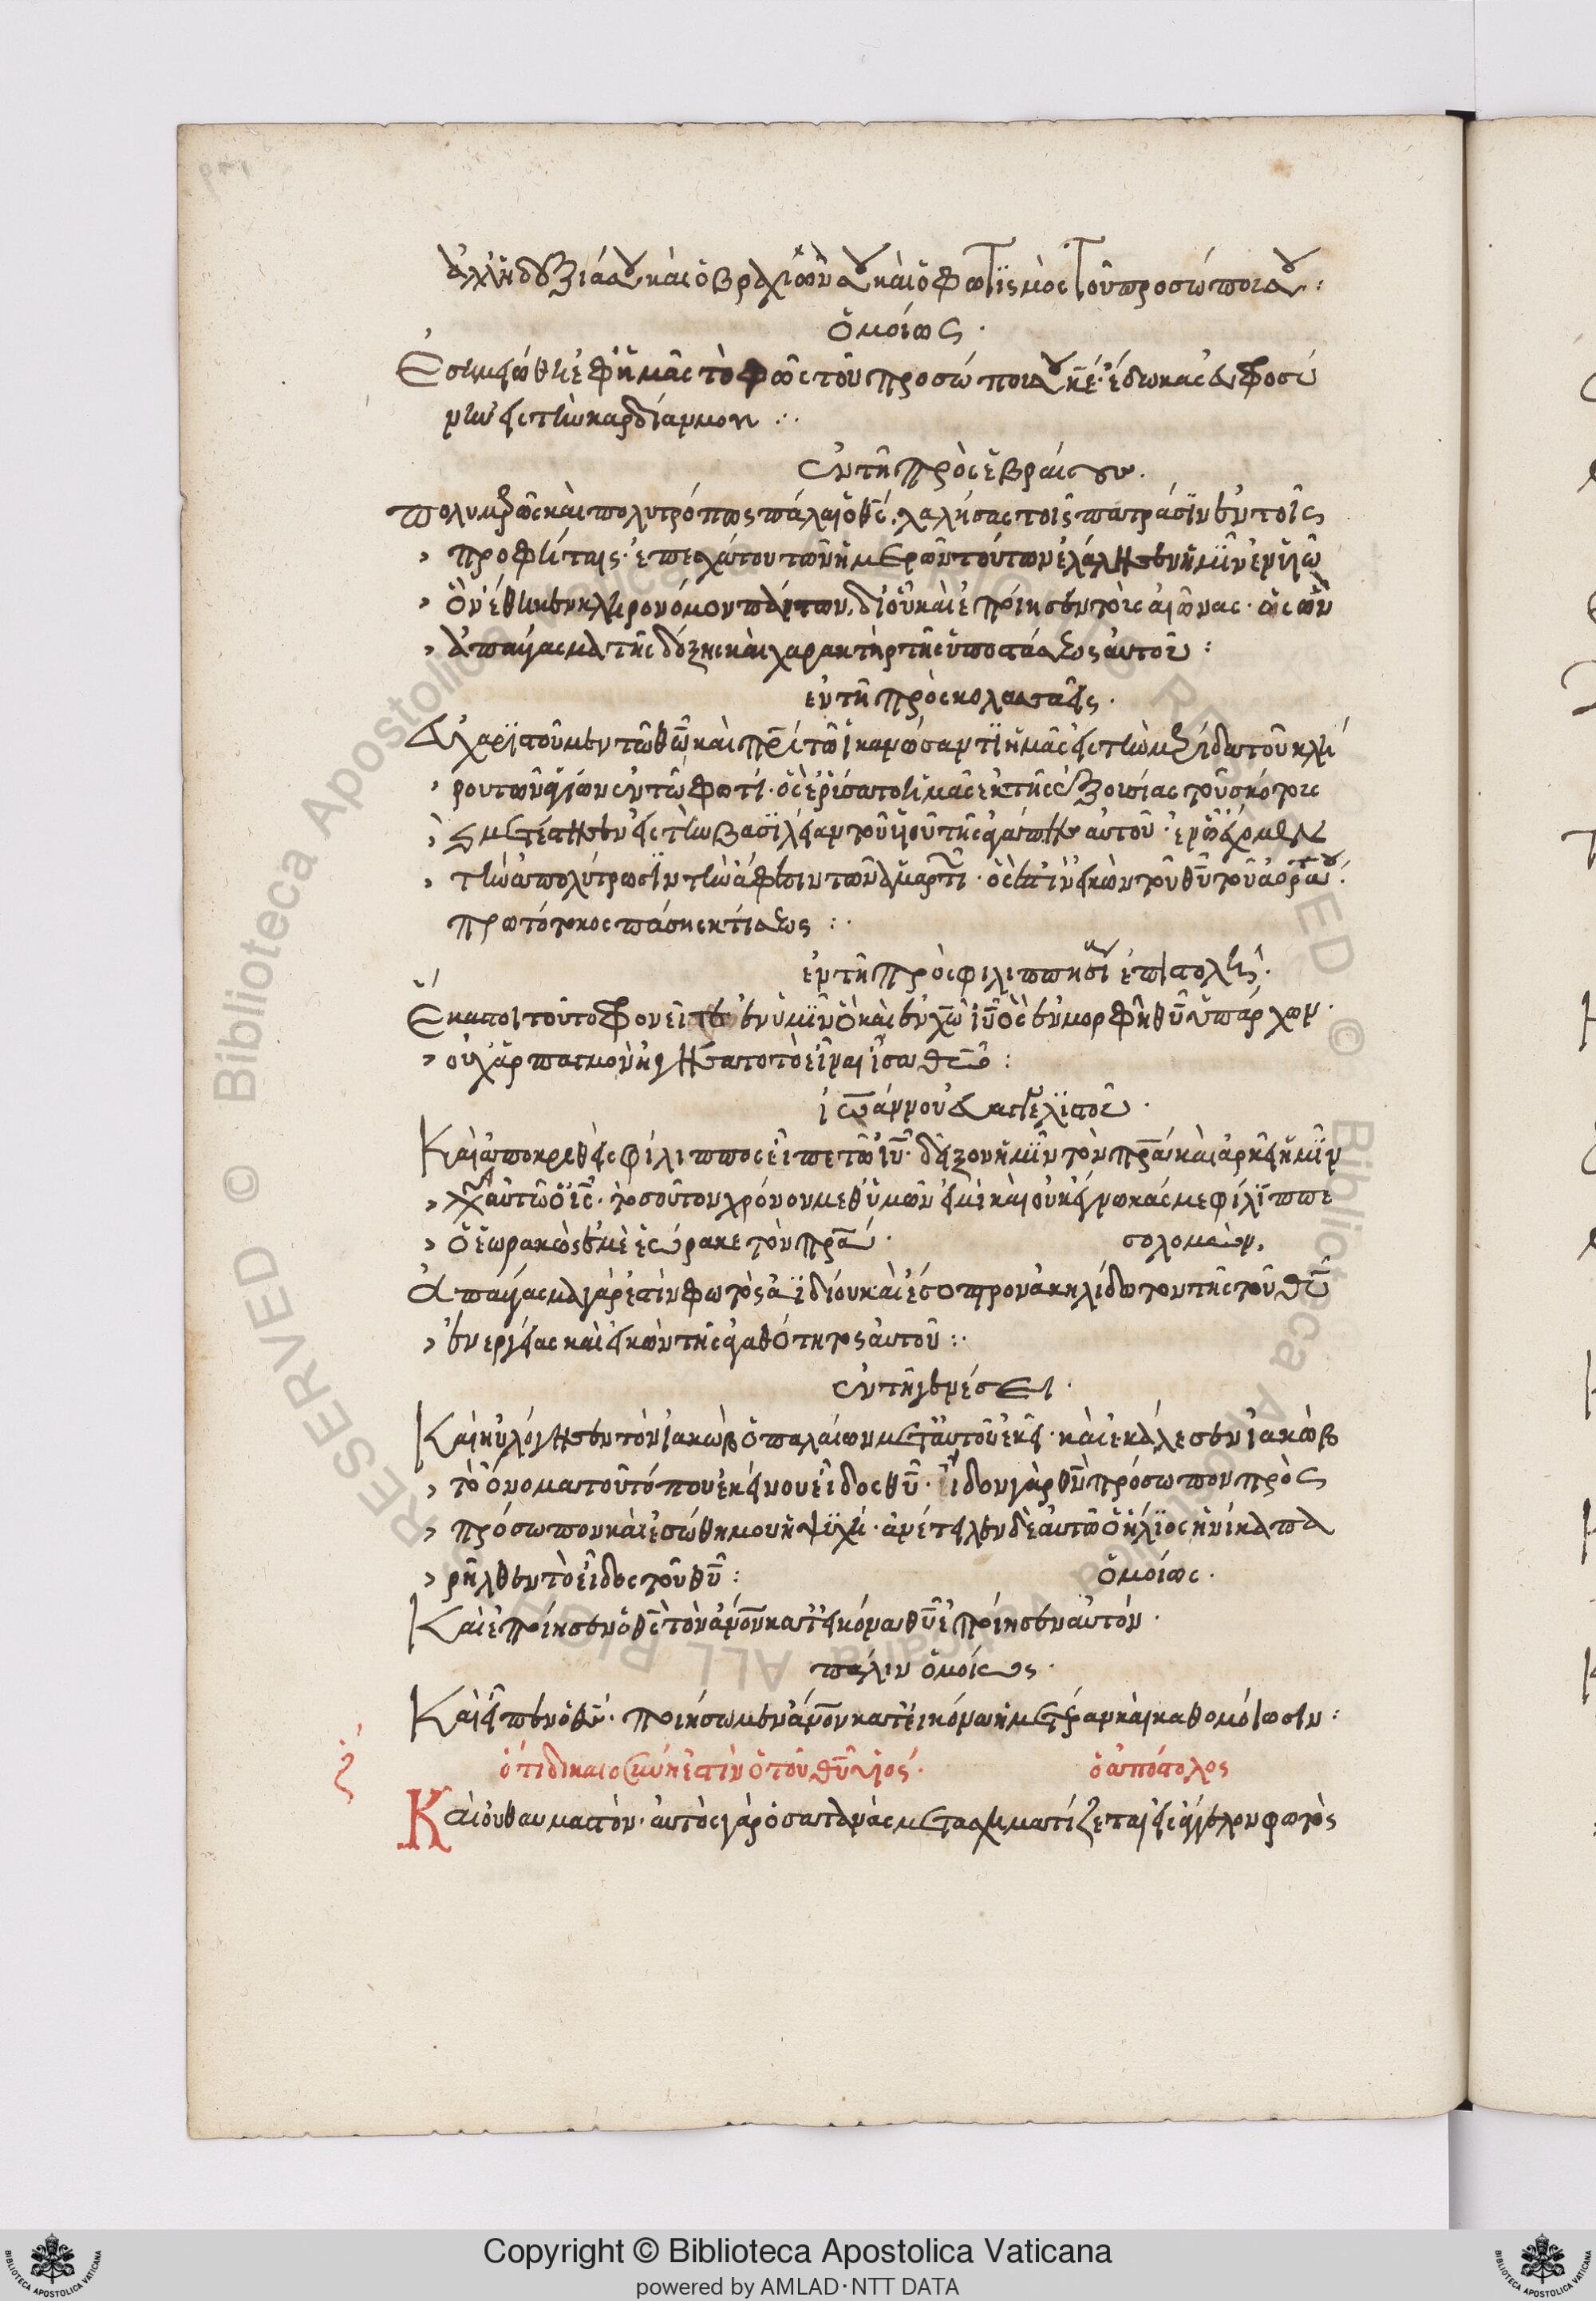 ἀλλ' ἡ δεξιά σου καὶ ὁ βραχίων σου καὶ ὁ φωτισμὸς τοῦ προσώπου σου :
ὁμοίως ·
Ἐσημειώθη ἐφ' ἡμᾶς τὸ φῶς τοῦ προσώπου σου κε · ἔδωκας εὐφροσύ
νην εἰς τὴν καρδίαν μου :·
ἐν τῇ πρὸς ἑβραίους ·
Πολυμερῶς καὶ πολυτρόπως πάλαι ὁ θς λαλήσας τοῖς πατράσιν ἐν τοῖς
› προφήταις · ἐπ' ἐσχάτου τῶν ἡμερῶν τούτων ἐλάλησεν ἡμῖν ἐν υἱῷ
› ὃν ἔθηκεν κληρονόμον πάντων, δι' οὗ καὶ ἐποίησεν τοὺς αἰῶνας · ὃς ὢν
› ἀπαύγασμα τῆς δόξης καὶ χαρακτὴρ τῆς ὑποστάσεως αὐτοῦ :
ἐν τῇ πρὸς κολασσαεῖς ·
Εὐχαριστοῦμεν τῷ θῶ καὶ πρι τῷ ἱκανώσαντι ἡμᾶς εἰς τὴν μερίδα τοῦ κλή
› ρου τῶν ἁγίων ἐν τῷ φωτί · ὃς ἐρίσατο ἡμᾶς ἐκ τῆς ἐξουσίας τοῦ σκότους
› καὶ μετέστησεν εἰς τὴν βασιλείαν τοῦ υἱοῦ τῆς ἀγάπης αὐτοῦ · ἐν ᾧ ἔχομεν
› τὴν ἀπολύτρωσιν τὴν ἄφεσιν τῶν ἁμαρτιῶν · ὅς ἐστιν εἰκὼν τοῦ θυ τοῦ ἀοράτου ·
πρωτότοκος πάσης κτίσεως :·
ἐν τῇ πρὸς φιλιππησίους ἐπιστολῆς ·
Ἕκαστοι τοῦτο φρονεῖτε ἐν ὑμῖν ὃ καὶ ἐν χω ιυ ὃς ἐν μορφῇ θυ ὑπάρχων ·
› οὐχ ἁρπαγμὸν ἡγήσατο τὸ εἶναι ἴσα θεῷ :
ἰωάννου εὐαγγελιστοῦ ·
Καὶ ἀποκριθεὶς φίλιππος εἶπε τῷ ιυ · δεῖξον ἡμῖν τὸν πρα καὶ ἀρκεῖ ἡμῖν
› λέγει αὐτῷ ὁ ις · τοσοῦτον χρόνον μεθ' ὑμῶν εἰμὶ καὶ οὐκ ἔγνωκάς με φίλιππε
› ὁ ἑωρακὼς ἐμὲ ἑώρακε τὸν πρα · σολομών.
Ἀπαύγασμα γάρ ἐστιν φωτὸς ἀϊδίου καὶ ἔσοπτρον ἀκηλίδωτον τῆς τοῦ θυ
› ἐνεργείας καὶ εἰκὼν τῆς ἀγαθότητος αὐτοῦ :·
ἐν τῇ γενέσει ·
Καὶ ηὐλόγησεν τὸν ἰακὼβ ὁ παλαίων μετ' αὐτοῦ ἐκεῖ · καὶ ἐκάλεσεν ἰακὼβ
› τὸ ὄνομα τοῦ τόπου ἐκείνου εἶδος θυ · εἶδον γὰρ θν πρόσωπον πρὸς
› πρόσωπον καὶ ἐσώθη μου ἡ ψυχή · ἀνέτειλεν δὲ αὐτῷ ὁ ἥλιος ἡνίκα πα
› ρῆλθεν τὸ εἶδος τοῦ θυ : ὁμοίως ·
Καὶ ἐποίησεν ὁ θς τὸν ἀνον κατ' εἰκόνα θυ ἐποίησεν αὐτόν ·
πάλιν ὁμοίως ·
Καὶ εἶπεν ὁ θς · ποιήσωμεν ἀνον κατ' εἰκόνα ἡμετέραν καὶ καθ' ὁμοίωσιν :
ζ ὅτι δικαιοσύνη ἐστὶν ὁ τοῦ θυ υἱός · ὁ ἀπόστολος
Καὶ οὐ θαυμαστόν · αὐτὸς γὰρ ὁ σατανᾶς μετασχηματίζεται εἰς ἄγγελον φωτὸς
Copyright © Biblioteca Apostolica Vaticana
powered by AMLAD·NTT DATA